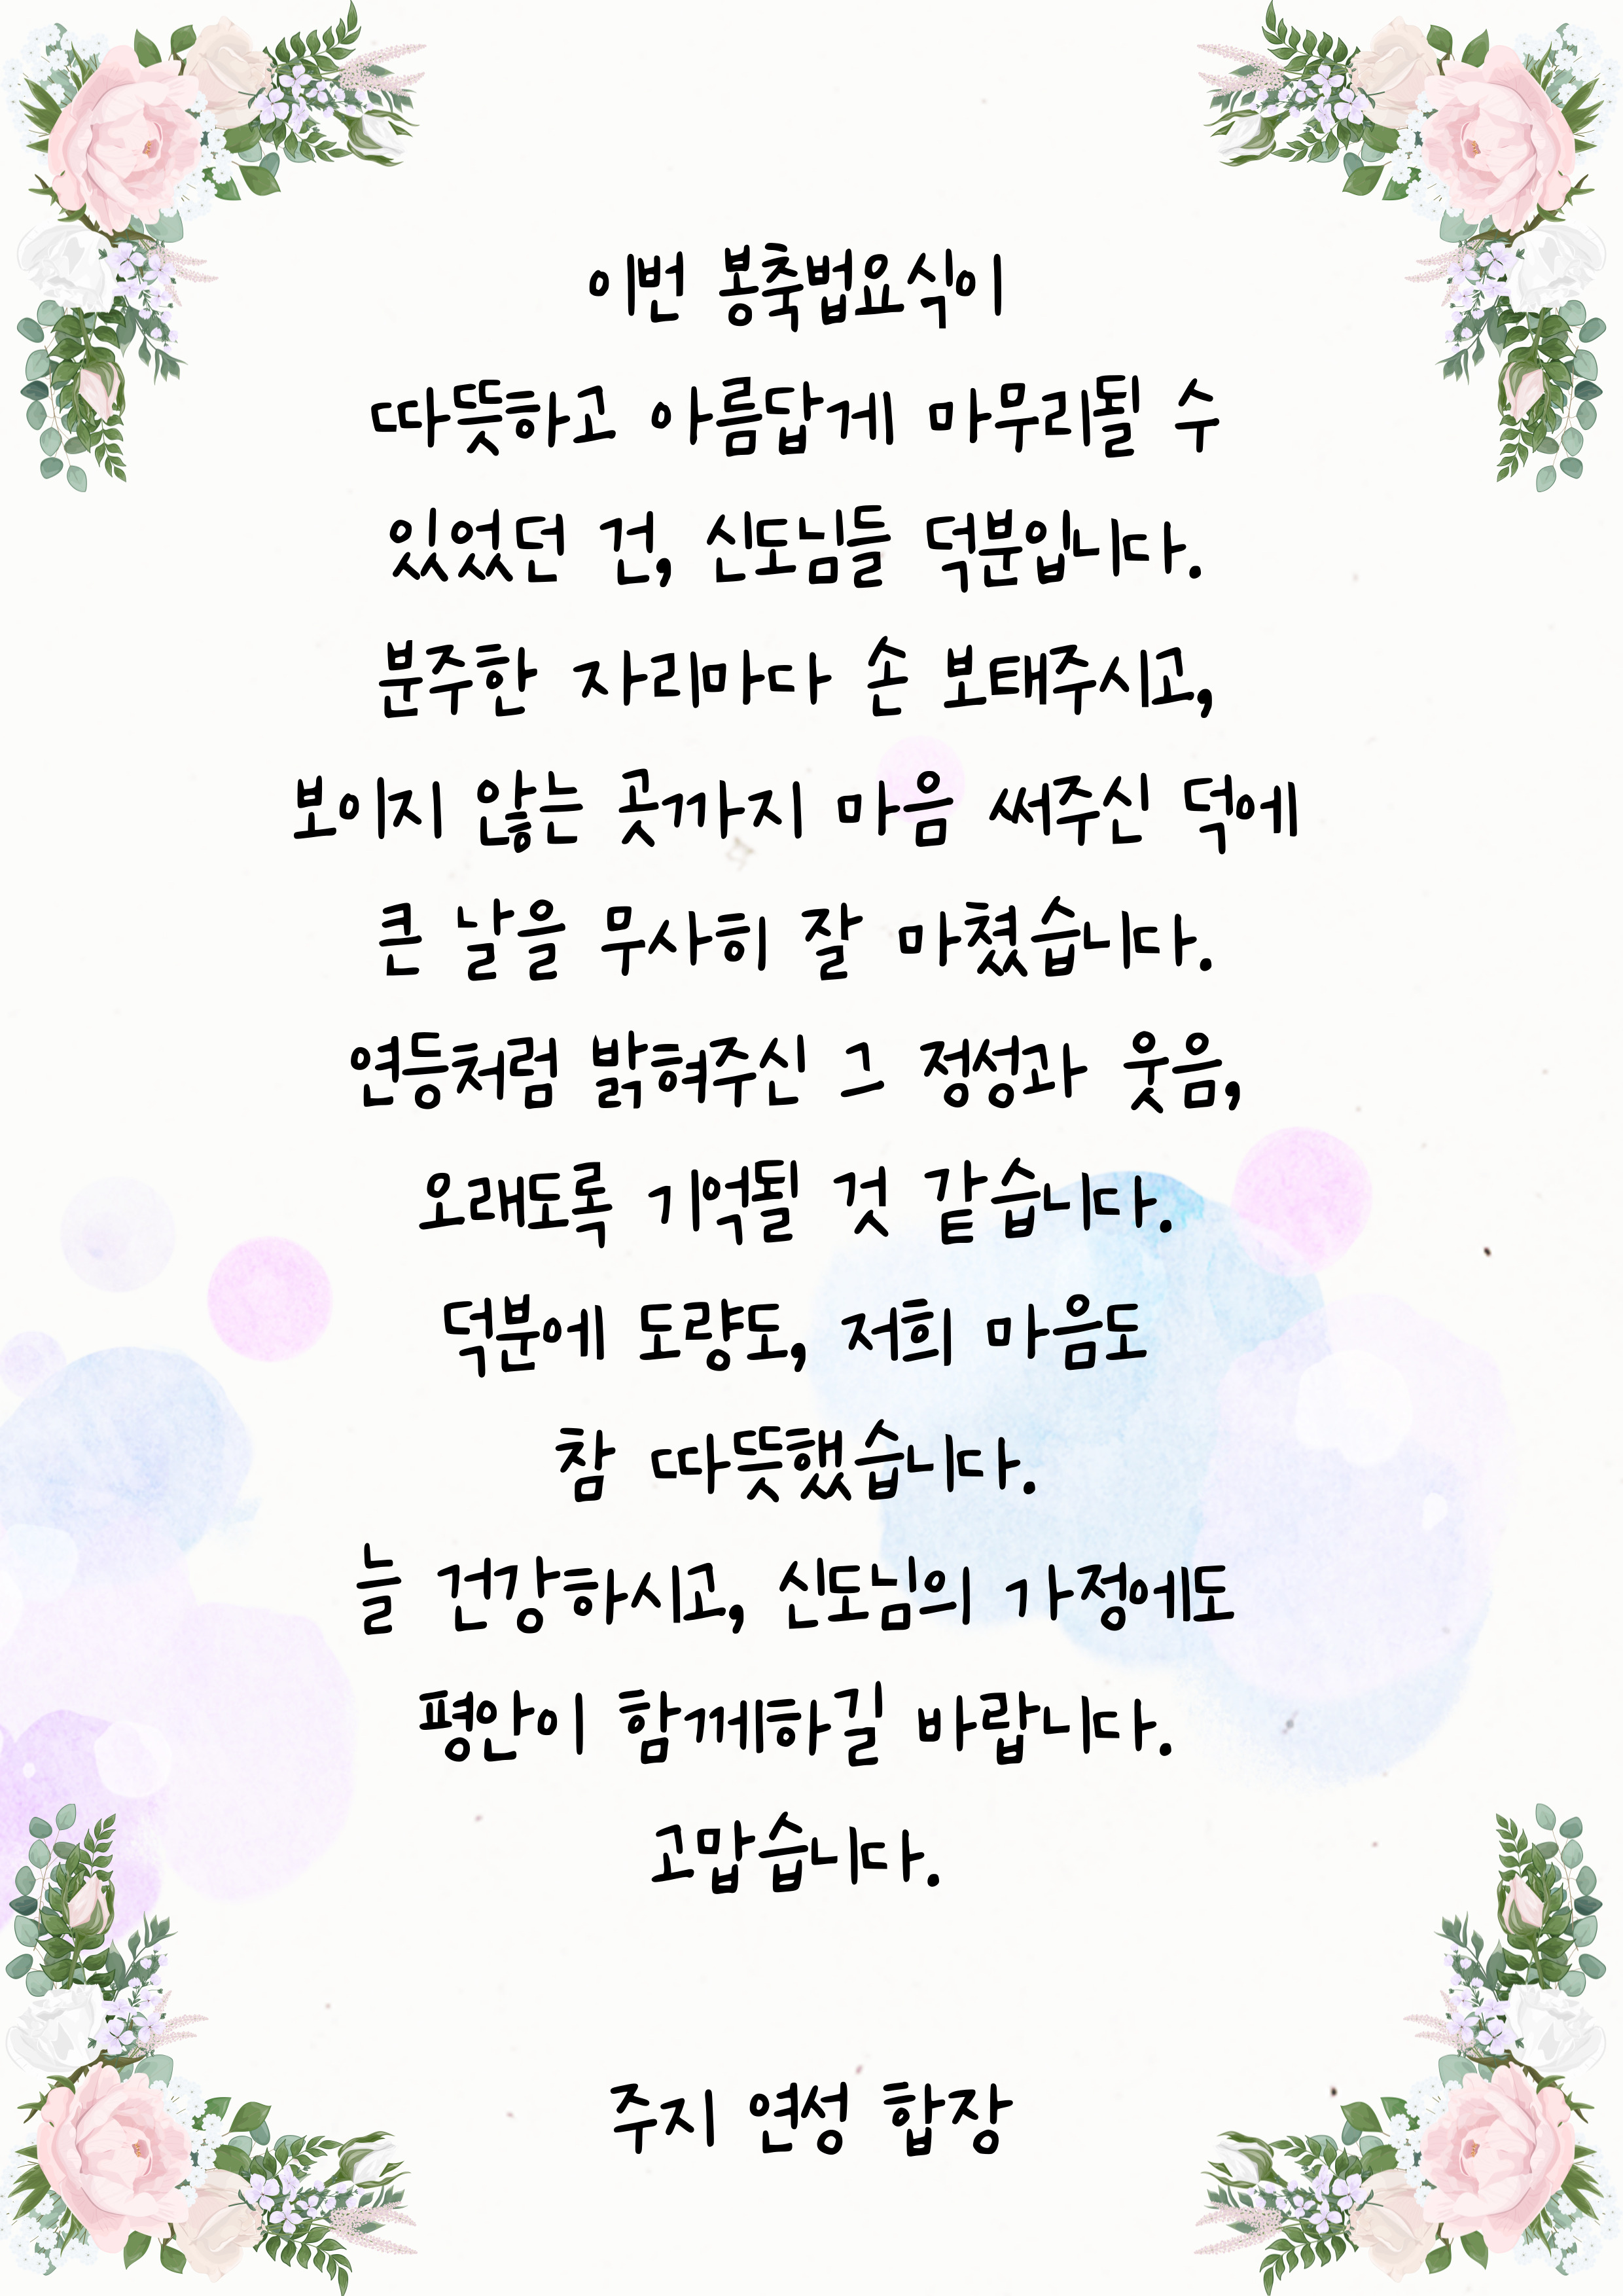 이번 봉축법요식이
따뜻하고 아름답게 마무리될 수
있었던 건, 신도님들 덕분입니다.
분주한 자리마다 손 보태주시고,
보이지 않는 곳까지 마음 써주신 덕에
큰 날을 무사히 잘 마쳤습니다.
연등처럼 밝혀주신 그 정성과 웃음,
오래도록 기억될 것 같습니다.
덕분에 도량도, 저희 마음도
참 따뜻했습니다.
늘 건강하시고, 신도님의 가정에도
평안이 함께하길 바랍니다.
고맙습니다.
주지 연성 합장